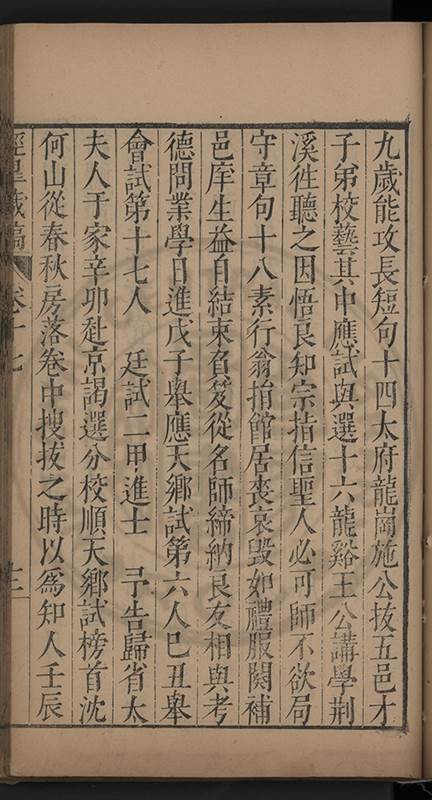 九歲能攻長短句十四太府龍崗施公拔五邑才
子弟校藝其中應試與選十六龍谿王公講學荆
溪徃聽之因悟良知宗指信聖人必可師不欲局
守章句十八素行翁捐館居喪哀毀如禮服闋補
邑庠生益自結束負笈從名師締納良友相與考
德問業學日進戊子舉應天鄉試第六人巳丑舉
會試第十七人 廷試二甲進士 予告歸省太
夫人于家辛卯赴京謁選分校順天鄉試榜首沈
何山從春秋房落卷中搜拔之時以爲知人壬辰
藏稿 卷十七 三